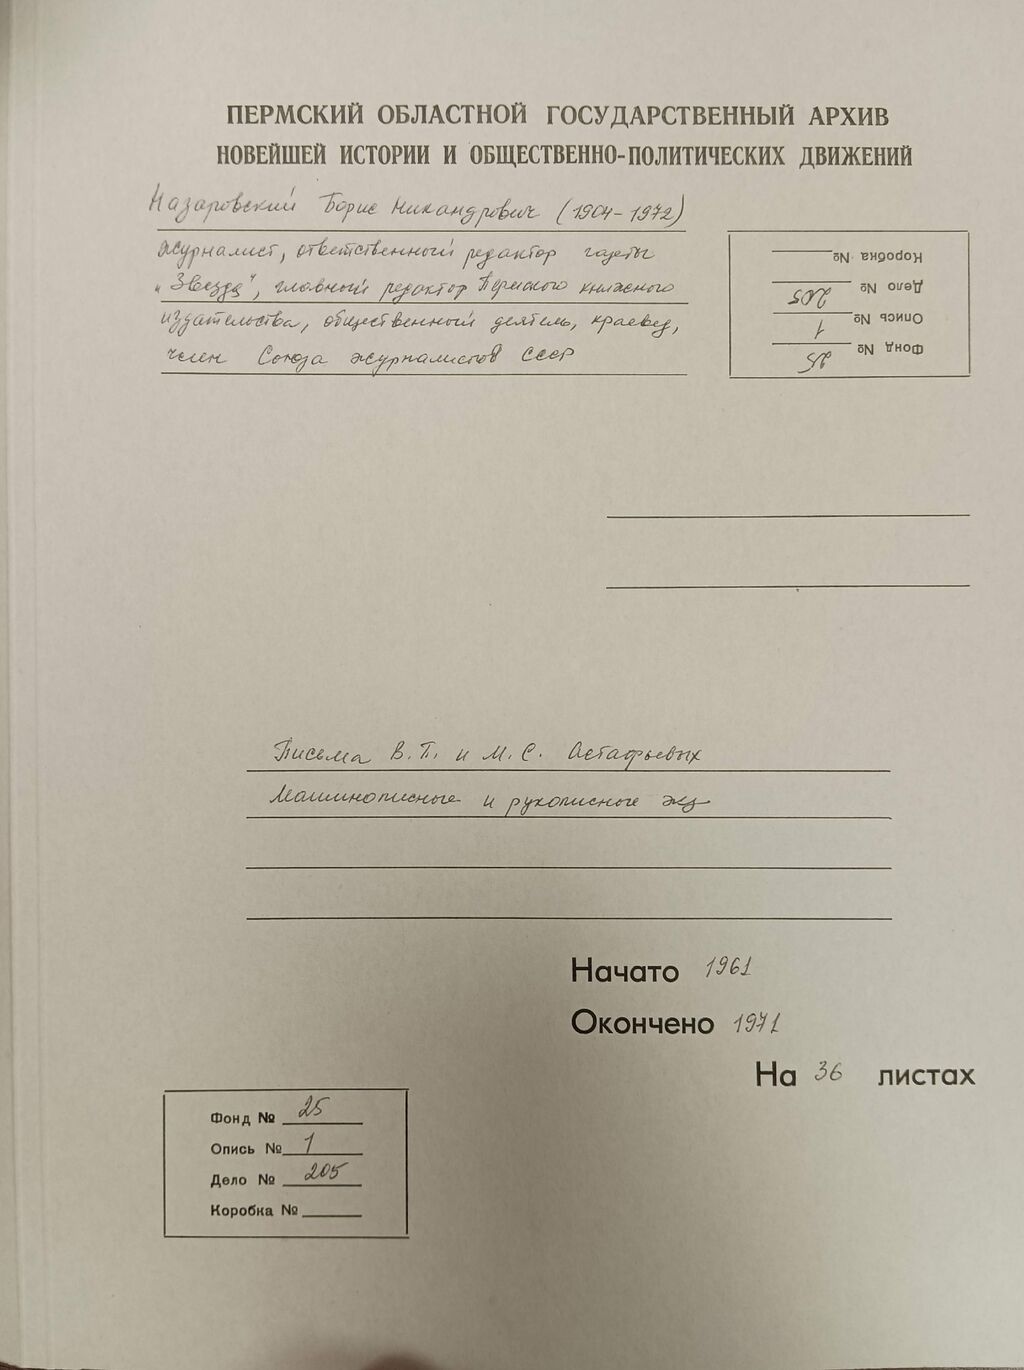 ПЕРМСКИЙ ОБЛАСТНОЙ ГОСУДАРСТВЕННЫЙ АРХИВ
НОВЕЙШЕЙ ИСТОРИИ И ОБЩЕСТВЕННО-ПОЛИТИЧЕСКИХ ДВИЖЕНИЙ
Назаровский Борис Никандрович (1904-1972)
журналист, ответственный редактор газеты
"Звезда", главный редактор Пермского книжного
издательства, общественный деятель, краевед,
член Союза журналистов СССР
Фонд № 25
Опись № 1
Дело № 205
Коробка №
Письма В.П. и М.С. Астафьевых
Машинописные и рукописные экз
Начато 1961
Окончено 1971
На 36 листах
Фонд № 25
Опись № 1
Дело № 205
Коробка №